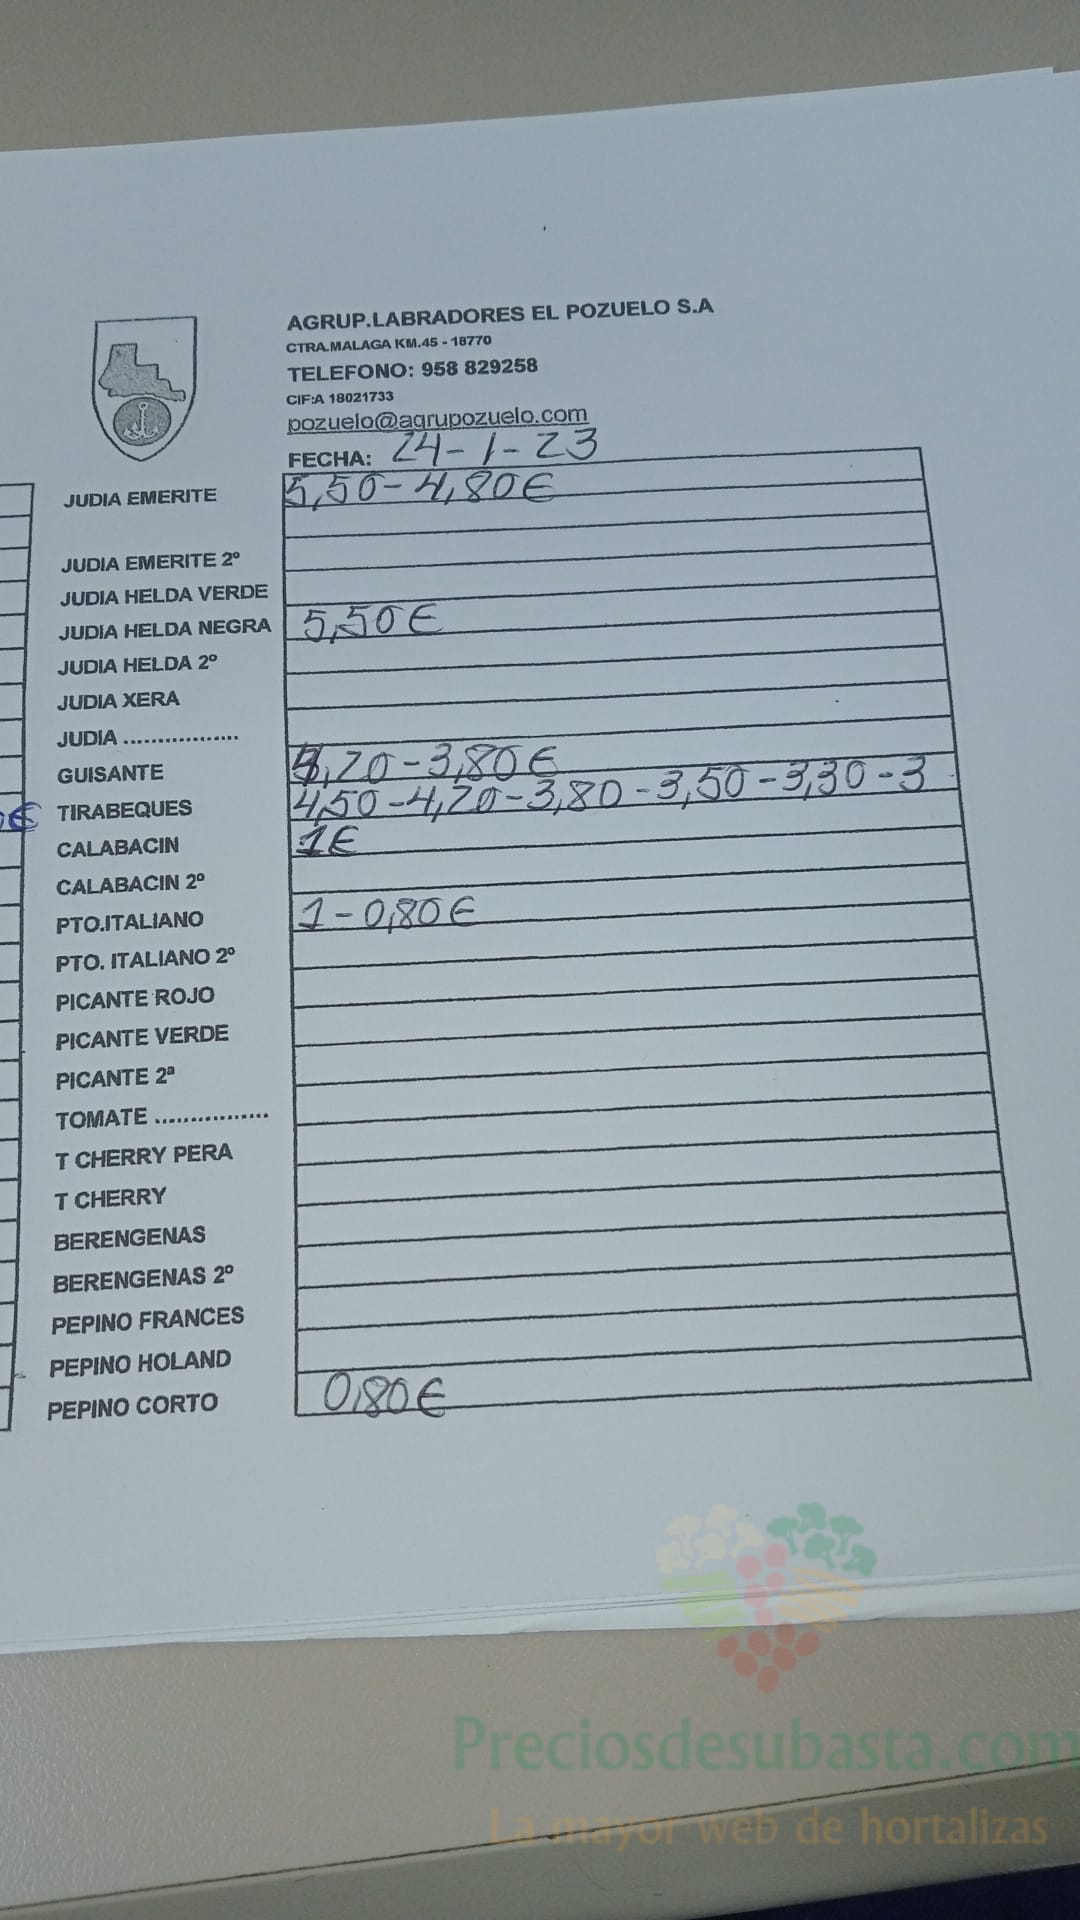 AGRUP.LABRADORES EL POZUELO S.A
CTRA.MALAGA KM.45 - 18770
TELEFONO: 958 829258
CIF:A 18021733
pozuelo@agrupozuelo.com
FECHA: 24-1-23
JUDIA EMERITE 5,50-4,80€
JUDIA EMERITE 2º
JUDIA HELDA VERDE
JUDIA HELDA NEGRA 5,50€
JUDIA HELDA 2º
JUDIA XERA
JUDIA .................
GUISANTE -3,80€
€ TIRABEQUES 4,50-4,20-3,80-3,50-3,30-3
CALABACIN 1€
CALABACIN 2º
PTO.ITALIANO 1-0,80€
PTO. ITALIANO 2º
PICANTE ROJO
PICANTE VERDE
PICANTE 2ª
TOMATE ................
T CHERRY PERA
T CHERRY
BERENGENAS
BERENGENAS 2º
PEPINO FRANCES
PEPINO HOLAND
PEPINO CORTO 0,80€
Preciosdesubasta.com
La mayor web de hortalizas